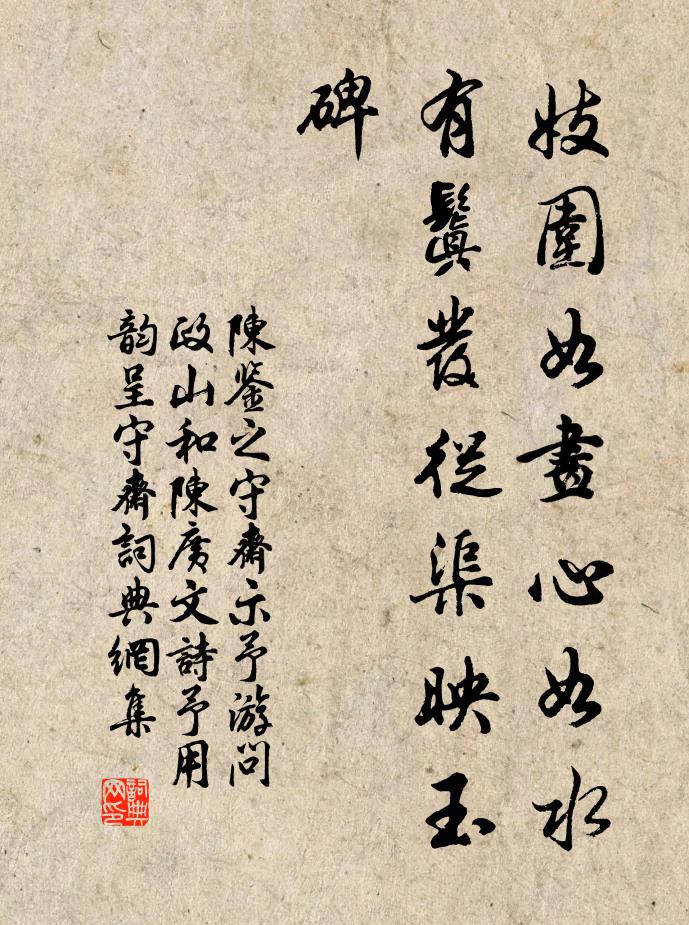 妓圍如畫心如水
有鬒髮從渠映玉
碑
陳鉴之守齋示予游問
政山和陳廣文詩予用
韵呈守齋詞典網集
詞典
网印